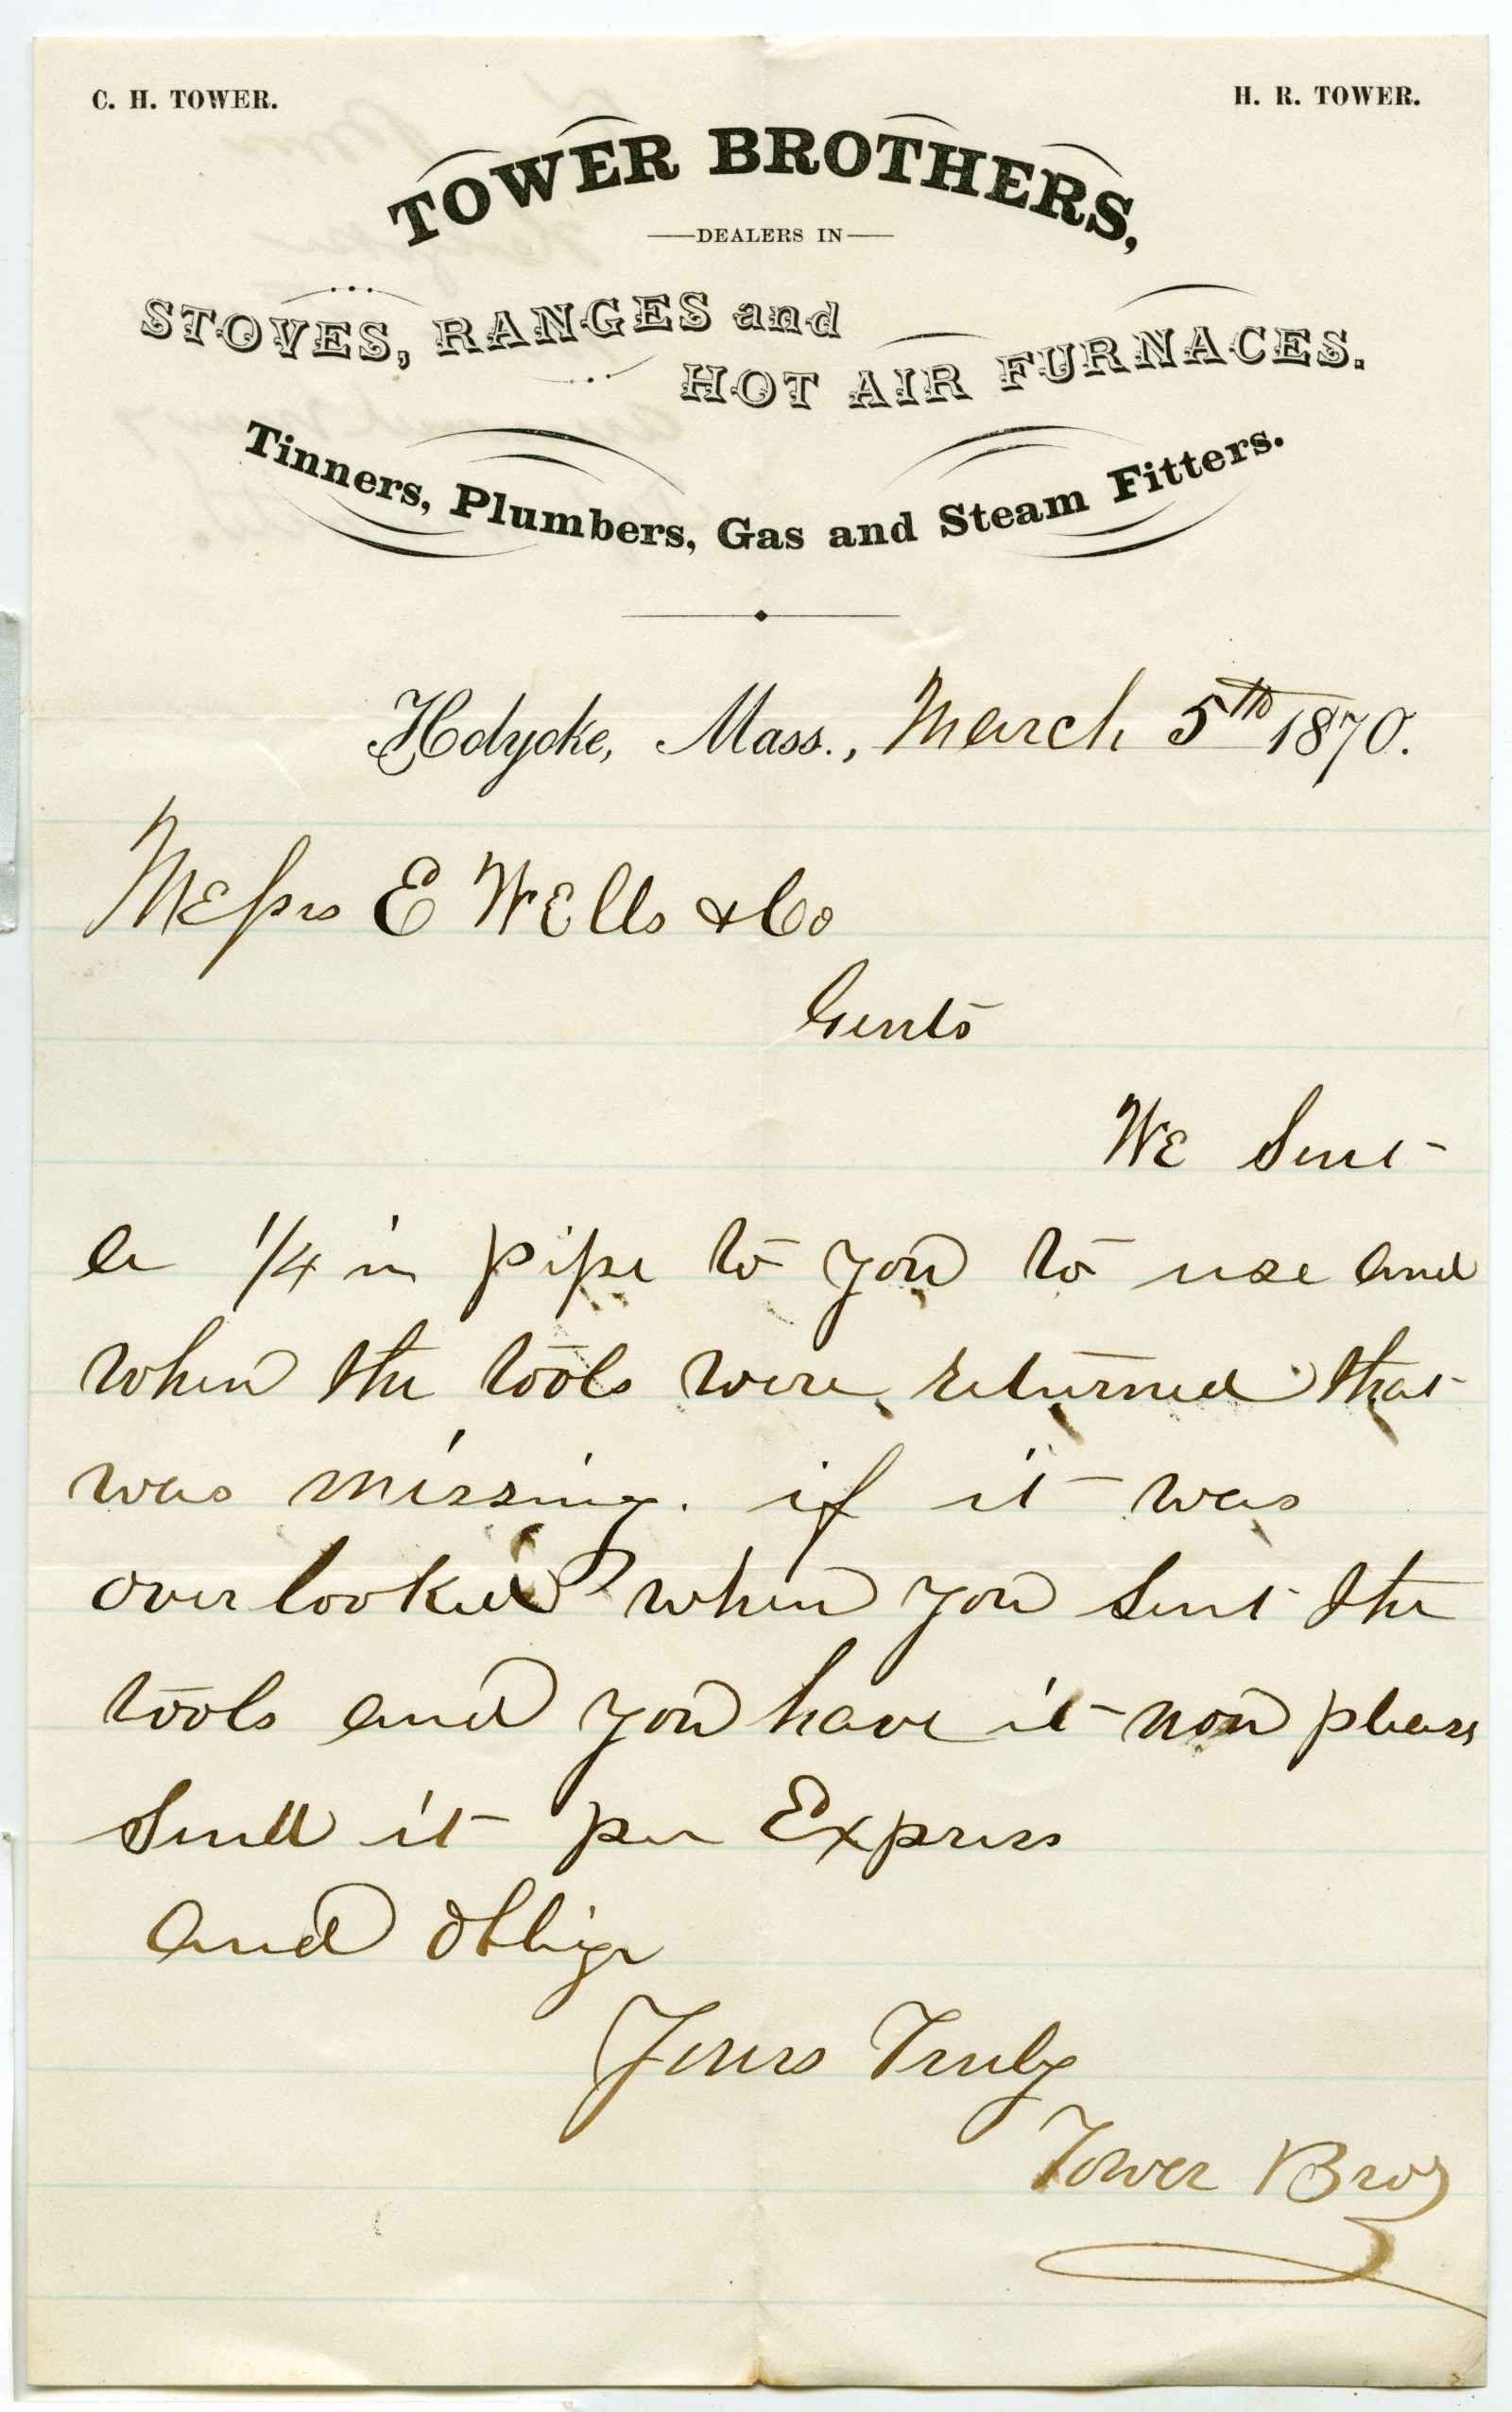 C. H. TOWER.
H. R. TOWER.
TOWER BROTHERS,
DEALERS IN
STOVES, RANGES and
HOT AIR FURNACES.
Tinners, Plumbers, Gas and Steam Fitters.
Holyoke, Mass., March 5th 1870.
Messrs E Wells & Co
Gents
We Sent
a 1/4 in pipe to you to use and
when the tools were returned that
was missing. if it was
over looked when you Sent the
tools and you have it now please
Send it per Express
and Oblige
Yours Truly
Tower Bros